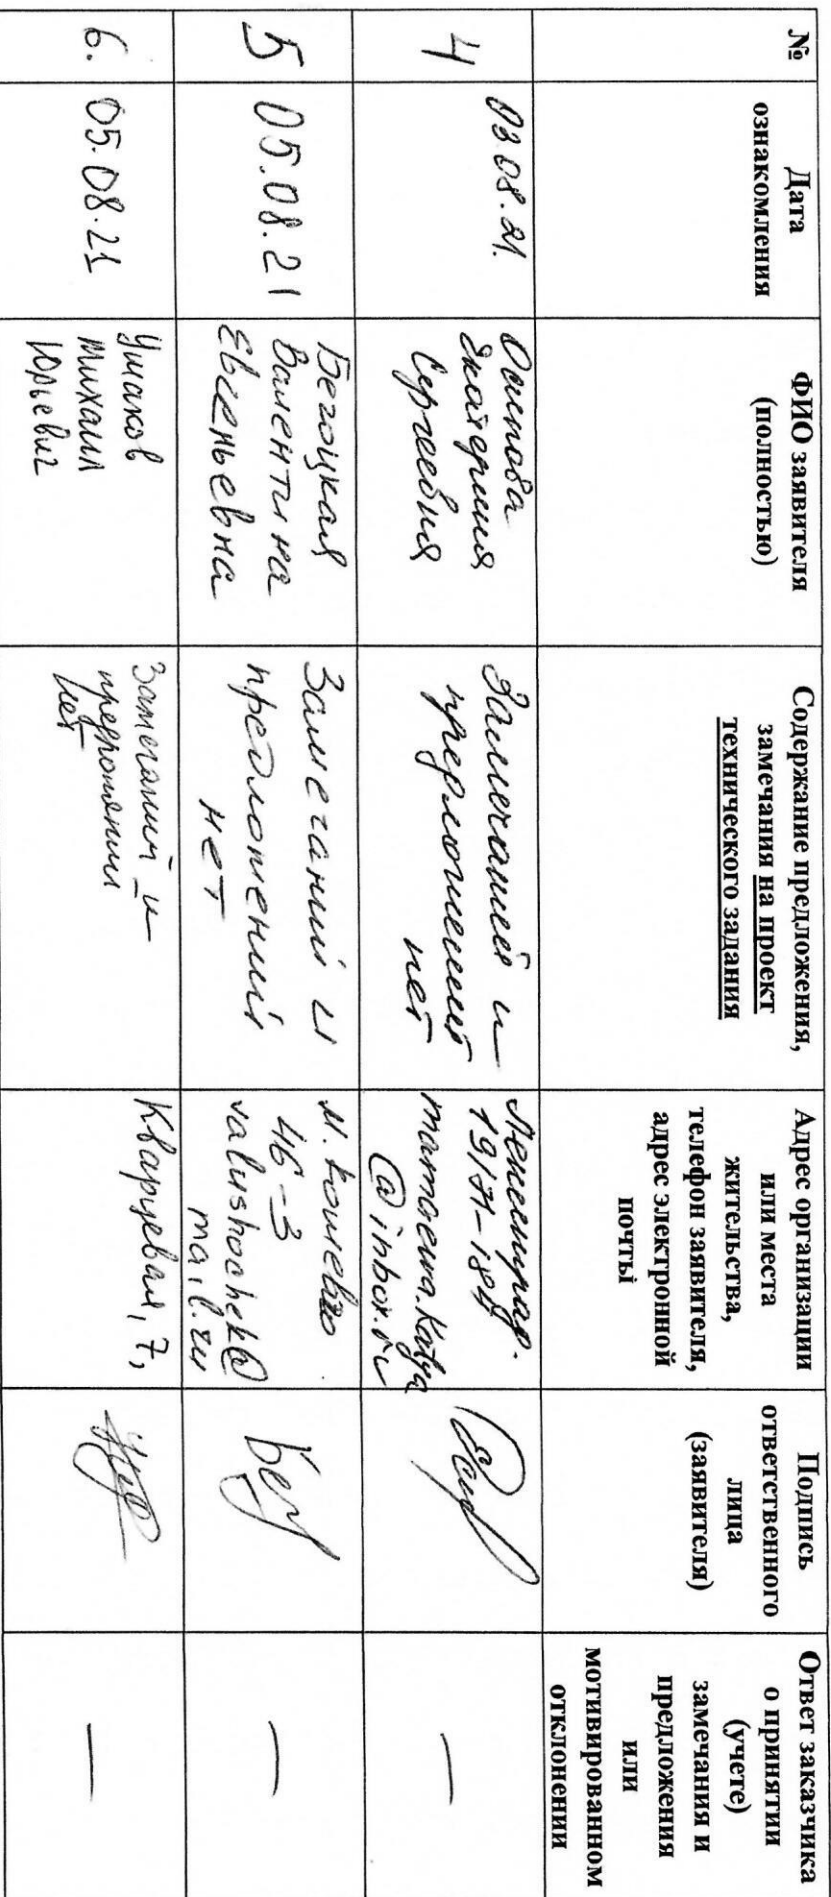 №
Дата
ознакомления
ФИО заявителя
(полностью)
Содержание предложения,
замечания на проект
технического задания
Адрес организации
или места
жительства,
телефон заявителя,
адрес электронной
почты
Подпись
ответственного
лица
(заявителя)
Ответ заказчика
о принятии
(учете)
замечания и
предложения
или
мотивированном
отклонении
4
03.08.21.
Осипова
Екатерина
Сергеевна
Замечаний и
предложений
нет
Ленинград.
@inbox.ru
—
5
05.08.21
Бегоцкая
Валентина
Евгеньевна
Замечаний и
предложений
нет
46-3
valushochek@
mail.ru
—
6.
05.08.21
Ушаков
Михаил
Юрьевич
Замечаний и
предложений
нет
Кварцевая, 7,
—